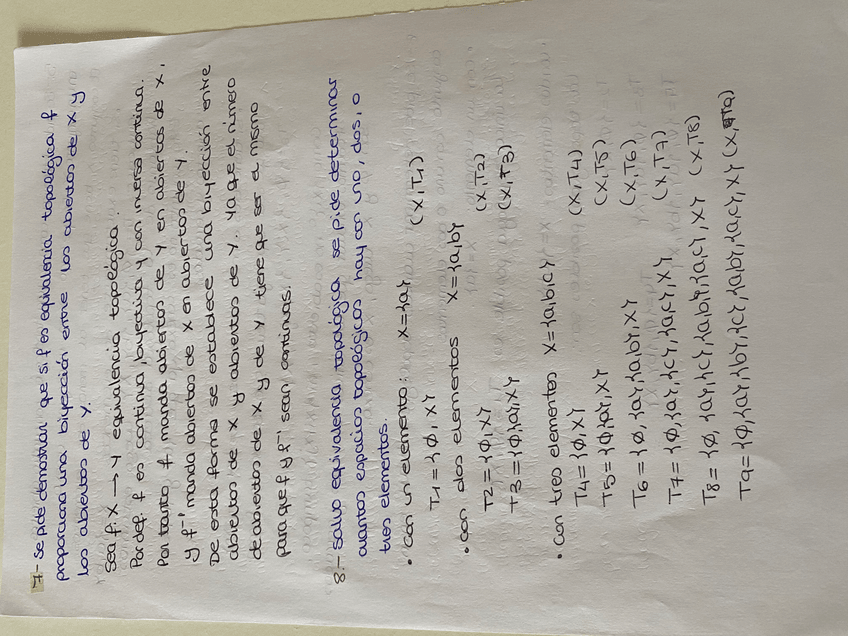 7- Se pide demostrar que si f es equivalencia topológica f
proporciona una biyección entre los abiertos de X y
los abiertos de Y.
Sea f: X → Y equivalencia topológica.
Por def. f es continua, biyectiva y con inversa continua.
Por tanto f manda abiertos de Y en abiertos de X,
y f⁻¹ manda abiertos de X en abiertos de Y.
De esta forma se establece una biyección entre
abiertos de X y abiertos de Y. Ya que el número
de abiertos de X y de Y tiene que ser el mismo
para que f y f⁻¹ sean continuas.
8.- Salvo equivalencia topológica se pide determinar
cuantos espacios topológicos hay con uno, dos, o
tres elementos.
• Con un elemento: X={a}
T1={∅, X} (X,T1)
• con dos elementos X={a,b}
T2={∅,X} (X,T2)
T3={∅,{a},X} (X,T3)
• Con tres elementos X={a,b,c}
T4={∅,X} (X,T4)
T5={∅{a},X} (X,T5)
T6={∅,{a},{a,b},X} (X,T6)
T7={∅,{a},{c},{a,c},X} (X,T7)
T8={∅,{a},{c},{a,b},{a,c},X} (X,T8)
T9={∅,{a},{b},{c},{a,b},{a,c},X} (X,T9)